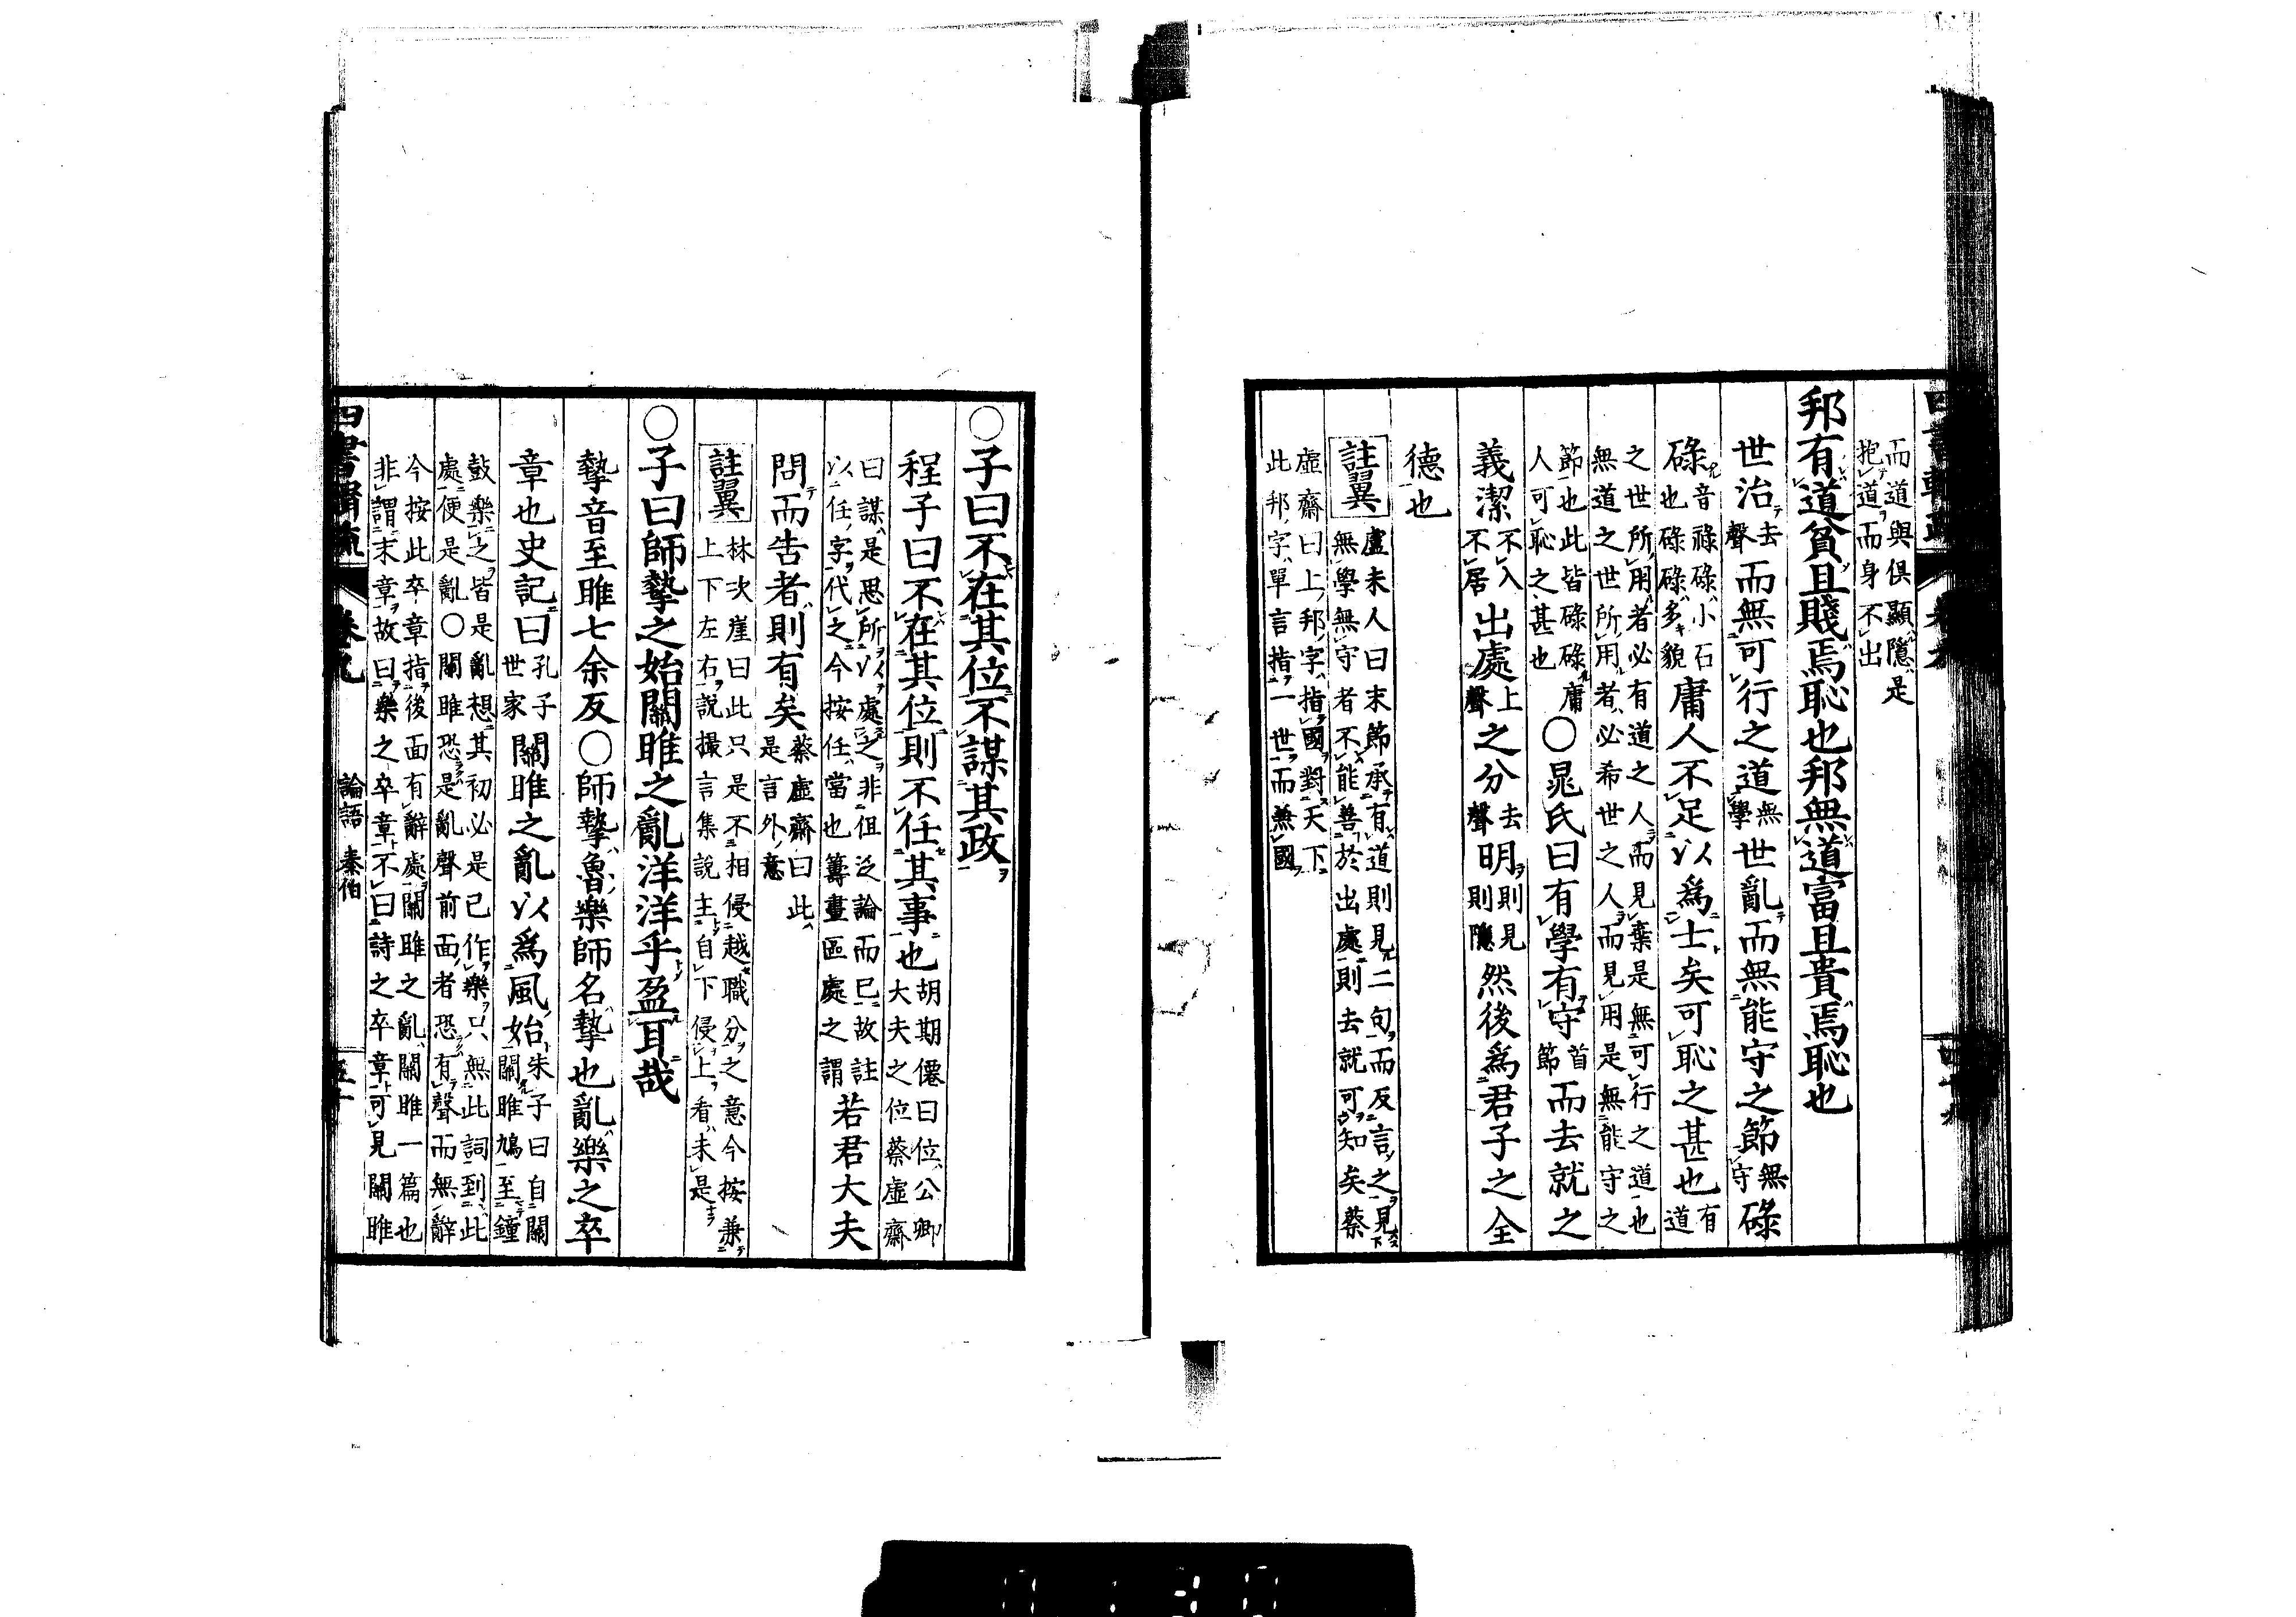 而道與俱顯隱是
抱道而身不出
邦有道貧且賤焉恥也邦無道富且貴焉恥也
世治去聲而無可行之道無學世亂而無能守之節無守碌
碌音祿碌小石也碌碌多貌庸人不足以爲士矣可恥之甚也有道
之世所用者必有道之人而見棄是無可行之道也
無道之世所用者必希世之人而見用是無能守之
節也此皆碌碌庸人可恥之甚也〇晁氏曰有學有守首節而去就之
義潔不入不居出處上聲之分去聲明則見則隱然後爲君子之全
德也
註翼盧未人曰末節承有道則見二句而反言之見下
無學無守者不能善於出處則去就可知矣蔡
虛齋曰上邦字指國對天下
此邦字單言指一世而兼國
〇子曰不在其位不謀其政
程子曰不在其位則不任其事也胡期僊曰位公卿大夫之位蔡虛齋
曰謀是思所以處之非但泛論而已故註
以任字代之今按任當也籌畫區處之謂若君大夫
問而告者則有矣蔡虛齋曰此是言外意
註翼林次崖曰此只是不相侵越職分之意今按兼
上下左右說撮言集說主自下侵上看未是
〇子曰師摯之始關雎之亂洋洋乎盈耳哉
摯音至雎七余反〇師摯魯樂師名摯也亂樂之卒
章也史記曰孔子世家關雎之亂以爲風始朱子曰自關關雎鳩至鐘
鼓樂之皆是亂想其初必是已作樂只無此詞到此
處便是亂〇關雎恐是亂聲前面者恐有聲而無辭
今按此卒章指後面有辭處關雎之亂關雎一篇也
非謂末章故曰樂之卒章不曰詩之卒章可見關雎
卷九
論語 泰伯